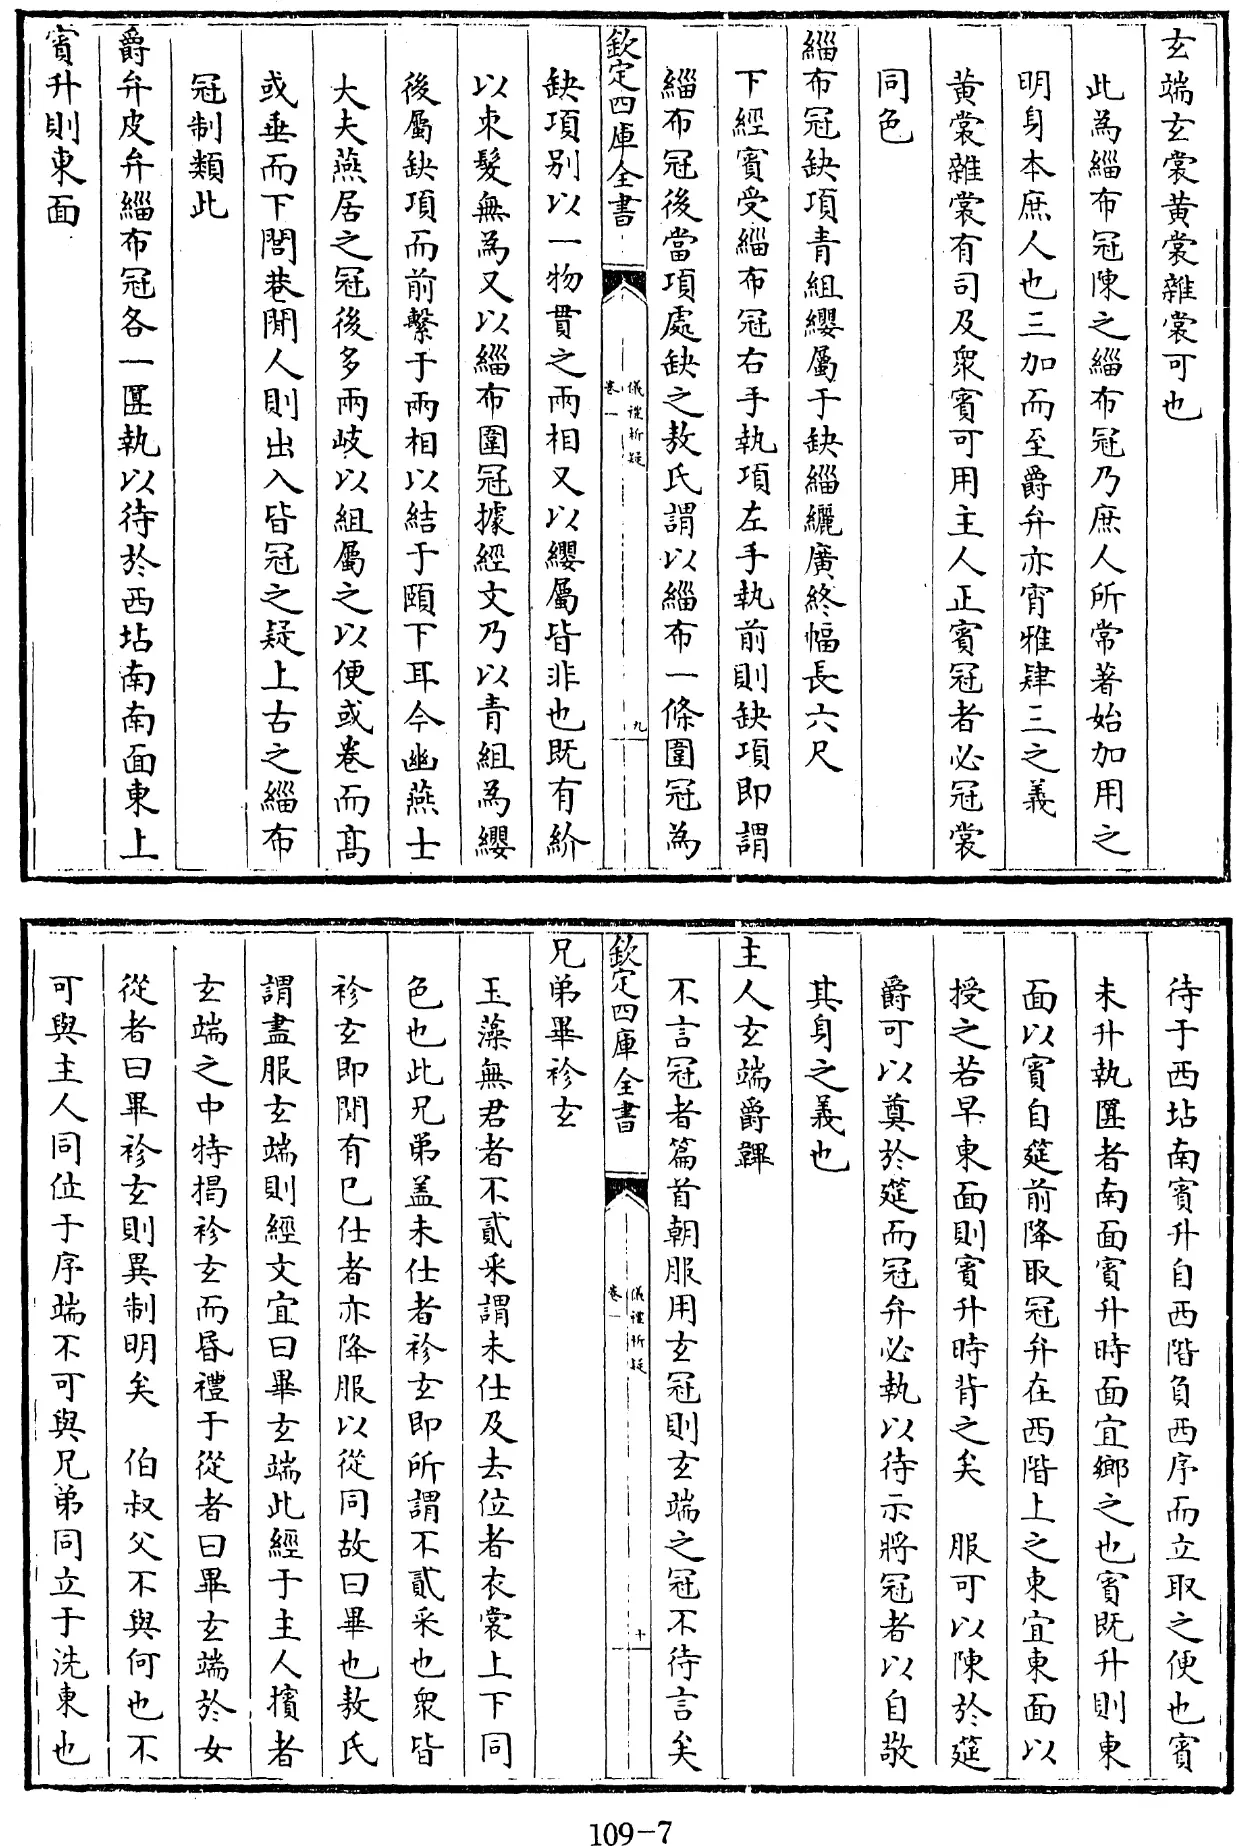 玄端玄裳黄裳雜裳可也
此為緇布冠陳之緇布冠乃庶人所常著始加用之
明身本庶人也三加而至爵弁亦宵雅肄三之義
黄裳雜裳有司及衆賓可用主人正賓冠者必冠裳
同色
緇布冠缺項青組纓屬于缺緇纚廣終幅長六尺
下經賓受緇布冠右手執項左手執前則缺項即謂
緇布冠後當項處缺之敖氏謂以緇布一條圍冠為
欽定四庫全書
儀禮析疑
卷一
九
缺項别以一物貫之兩相又以纓屬皆非也既有紒
以朿髮無為又以緇布圍冠據經文乃以青組為纓
後屬缺項而前繫于兩相以結于頤下耳今幽燕士
大夫燕居之冠後多兩岐以組屬之以便或卷而髙
或垂而下閭巷閒人則出入皆冠之疑上古之緇布
冠制類此
爵弁皮弁緇布冠各一匴執以待於西坫南南面東上
賓升則東面
待于西坫南賓升自西階負西序而立取之便也賓
未升執匴者南面賓升時面宜鄉之也賓既升則東
面以賓自筵前降取冠弁在西階上之東宜東面以
授之若早東面則賓升時背之矣　服可以陳於筵
爵可以奠於筵而冠弁必執以待示將冠者以自敬
其身之義也
主人玄端爵韠
不言冠者篇首朝服用玄冠則玄端之冠不待言矣
欽定四庫全書
儀禮析疑
卷一
十
兄弟畢袗玄
玉藻無君者不貳采謂未仕及去位者衣裳上下同
色也此兄弟盖未仕者袗玄即所謂不貳采也衆皆
袗玄即閒有已仕者亦降服以從同故曰畢也敖氏
謂盡服玄端則經文宜曰畢玄端此經于主人擯者
玄端之中特揭袗玄而昏禮于從者曰畢玄端於女
從者曰畢袗玄則異制明矣　伯叔父不與何也不
可與主人同位于序端不可與兄弟同立于洗東也
109-7